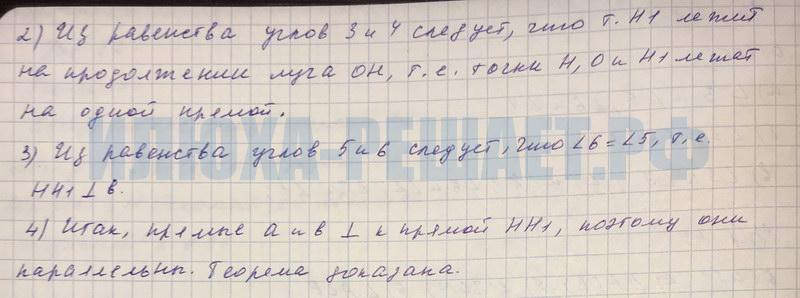 2) Из равенства углов 3 и 4 следует, что т. H1 лежит
на продолжении луча OH, т.е. точки H, O и H1 лежат
на одной прямой.
ИЛЮХА-РЕШАЕТ.РФ
3) Из равенства углов 5 и 6 следует, что ∠6 = ∠5, т.е.
HH1 ⊥ в.
4) Итак, прямые a и в ⊥ к прямой HH1, поэтому они
параллельны. Теорема доказана.